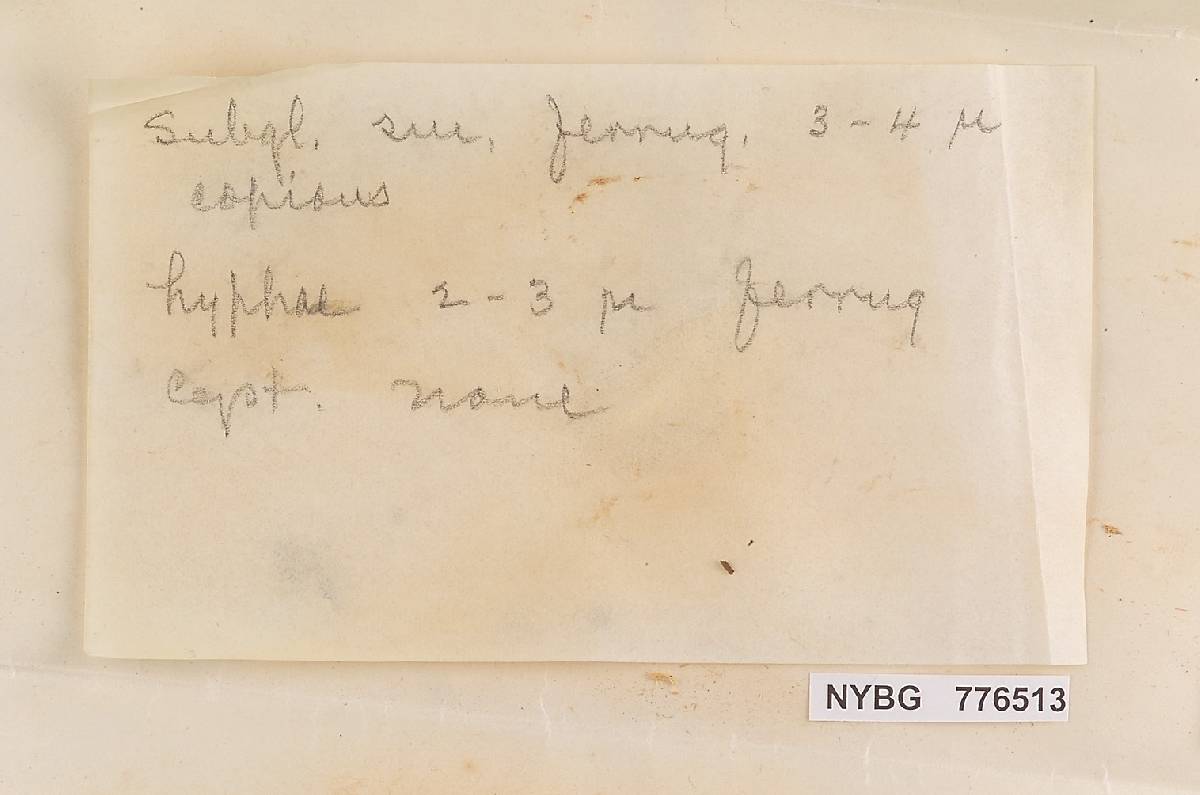 Subgl. sm, ferrug. 3-4 µ
copious
hyphae 2-3 µ ferrug
Cyst. none
NYBG 776513